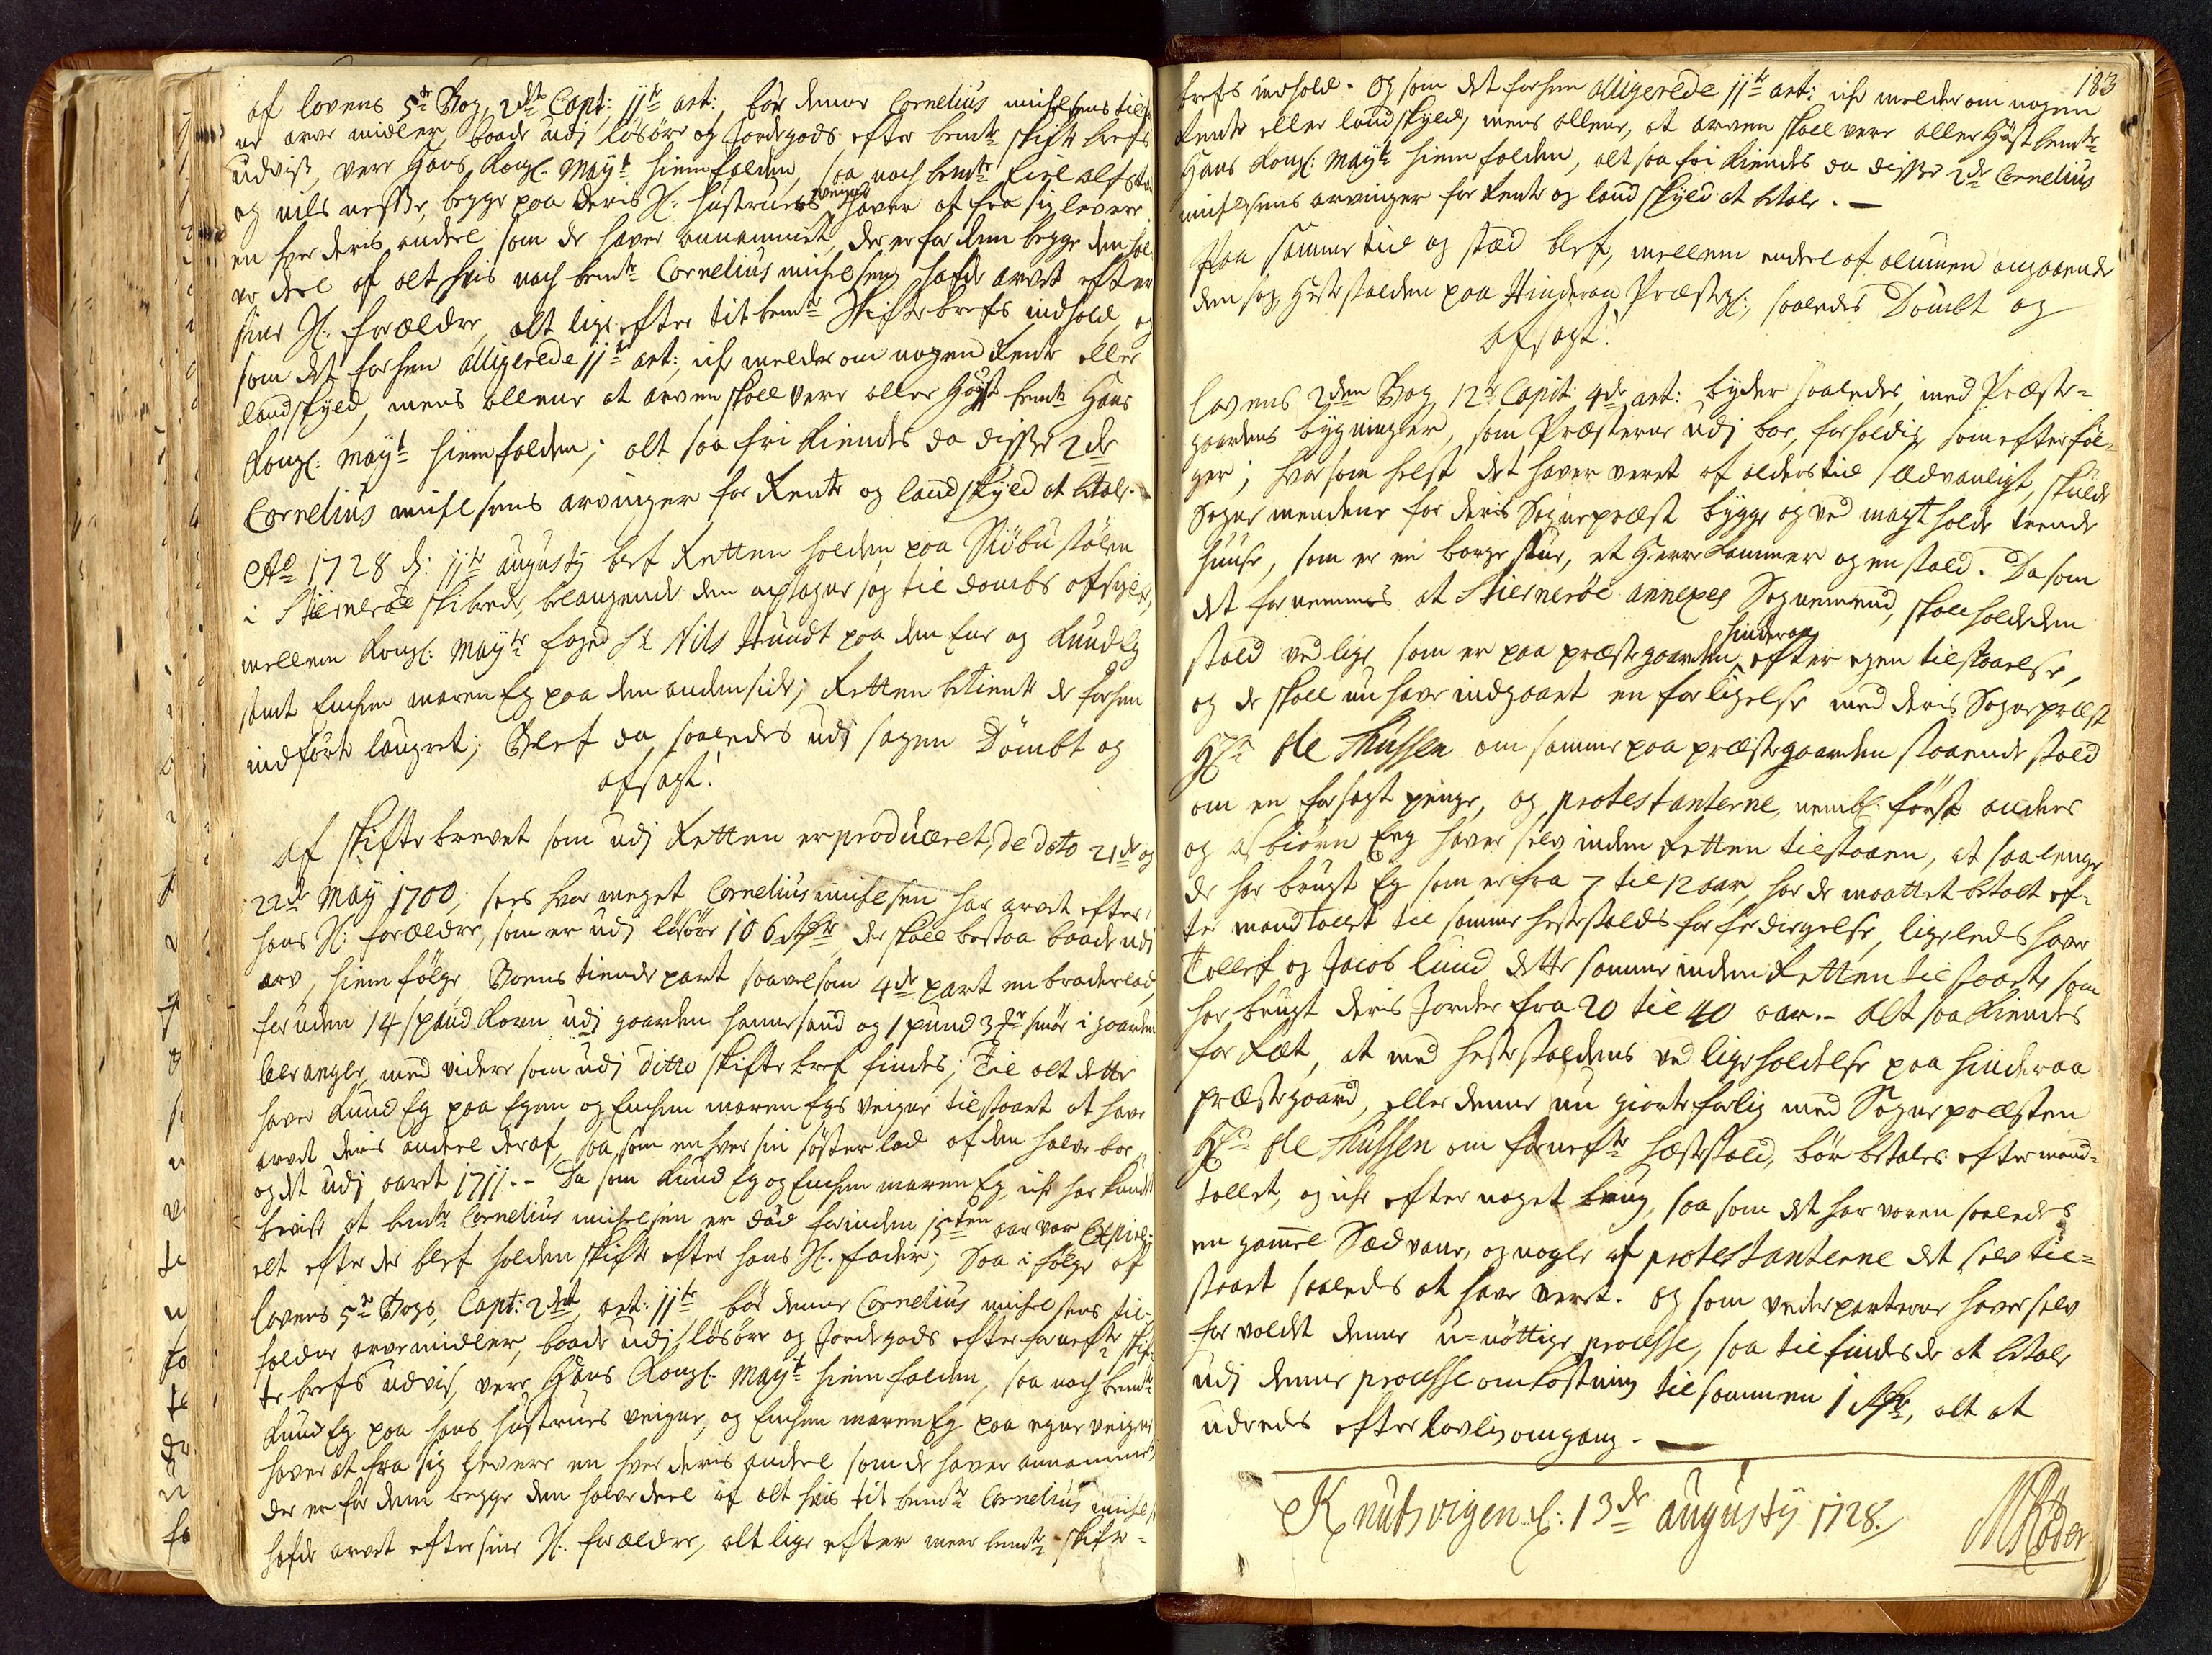 af lovens 5te Bog, 2det Capt: 11te art: bör denne Cornelius michelsens tilfal
ne arve midler, baade udj lösöre og Jordegods efter bemte skifte brefs
udviis, vere Hans Kongl. Mayts hiemfalden, saa nock bemte Eiel
og nils nesse, begge paa deris Sl. hustrues veigne haver at fra sig levere
en hver deris andeel som de haver annammet, der er for dem begge den hal
ve deel af alt hvis nock bemte Cornelius michelsen hafde arvet efter
sine Sl. forældre, alt lige efter tit bemte Skiftebrefs indhold, og
som det forhen alligerede 11te art: icke melder om nogen Rente eller
landskyld, mens allene at arven skall vere aller Höyst bemte Hans
Kongl: Mayts hiemfalden; alt saa fri kiendes da disse 2de
Cornelius michelsens arvinger for Rente og landskyld at betale.
Ao 1728 d: 11te augusty blef Retten holden paa Siöbustölen
i Stiernerøe skibrede, belangende den optagne sag til dombs afsigt,
mellem Kongl: Mayts foged Sr Nils Hundt paa den Ene og Knud Eg
samt Enchen maren Eg paa den anden side; Retten betiente de forhen
indförte laugret; Blef da saaledes udj sagen Dömbt og
afsagt!
Af skiftebrevet som udj Retten er produceret, de dato 21de og
22de May 1700, sees hvor meget Cornelius michelsen har arvet efter
hans Sl: forældre, som er udj lösöre 106 Rdr der skall bestaa baade udj
arv, hiemfölge, Boens tiende part saavelsom 4de part en broderlod,
foruden 14 spand Korn udj gaarden hamersand og 1 pund 3 mrk smör i gaarden
ber angle, med videre som udj ditto skifte bref findes; Til alt dette
haver Knud Eg paa Egen og Enchen maren Egs veigne tilstaaet at have
arvet deris andeel deraf, saa som en hver sin söster lod af den halve boe,
og det udj aaret 1711. - Da som Knud Eg og Enchen maren Eg, icke har kundet
bevise at bemte Cornelius michelsen er död forinden 15ten aar var Expire-
ret efter der blef holden skifte efter hans Sl. fader; Saa i fölge af
lovens 5te Bogs, Capt: 2det art: 11te bör denne Cornelius michelsens til-
faldne arvemidler, baade udj lösöre og Jordegods efter forneffte skif-
te brefs udviis, vere Hans Kongl. Mayts hiemfalden, saa nock bemte
Knud Eg paa hans hustrues veigne, og Enchen maren Eg paa egne veigne
haver at fra sig levere en hver deris andeel som de haver annammet
der er for dem begge den halve deel af alt hvis tit bemte Cornelius michels:
hafde arvet efter sine Sl. forældre, alt lige efter meer bemte skifte-
183
brefs indhold. Og som det forhen alligerede 11te art: icke melder om nogen
Rente eller landskyld, mens allene, at arven skall vere aller Höyst bemte
Hans Kongl: Mayts hiemfalden, alt saa fri kiendes da disse 2de Cornelius
michelsens arvinger for Rente og landskyld at betale. -
Paa samme tid og stæd blef, mellem endeel af almuen angaaende
den sag Hestestalden paa Hinderaa Præstegl:, saaledes Dömbt og
afsagt!
lovens 2den Bog, 12te Capit: 4de art: byder saaledes, med Præste-
gaardens bygninger, som Præsterne udj boe, forholdis som efterföl-
ger; hvor som helst det haver veret af alders tid sædvanligt, skulde
Sogne mendene for deris Sognepræst bygge og ved magt holde trende
huuse, som er en borgestue, et Herrekammer og en stald. Da som
det fornemmes at Stiernerøe annexes Sognemend, skall holde den
stald ved lige, som er paa præstegaarden hinderaa efter egen tilstaaelse,
og de skall nu have indgaaet en forligelse med deris Sognepræst
Hr. Ole Thussen om samme paa præstegaarden staaende stald
om en forsagt penge, og protestanterne, nembl: först anders
og Asbiörn Eeg haver selv inden Retten tilstaaen, at saa lenge
de har brugt Eg som er fra 7 til 12 aar, har de maattet betalt ef-
ter mandtallet til samme hestestalds forferdigelse, ligeleds haver
Tollef og Jacob lund dette samme inden Retten tilstaaet, som
har brugt deris Jorder fra 20 til 40 aar. - Alt saa kiendes
for Ræt, at med hestestaldens vedligeholdelse paa hinderaa
præstegaard, eller denne nu giorte forlig med Sognepræsten
Hr. Ole Thussen om forneffte hestestald, bör betales efter mand-
tallet, og icke efter noget brug, saa som det har voren saaledes
en gammel Sædvane, og nogle af protestanterne det selv til-
staaet saaledes at have veret. og som vederparterne haver selv
forvoldt denne u-nöttige processe, saa tilfindes de at betale
udj denne processes omkostning tilsammen 1 Rdr, alt at
udredes efter lovlig omgang. -
Knudsvigen d: 13de augusty 1728.